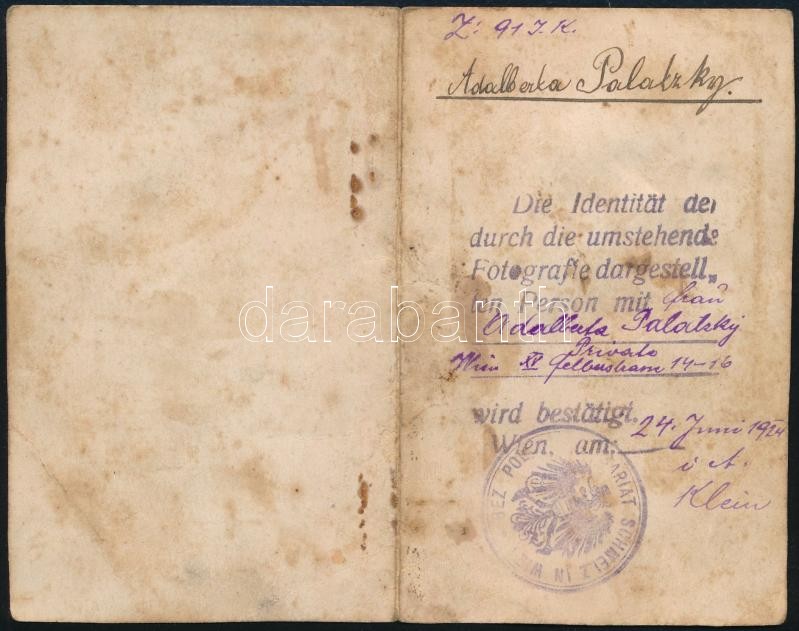 Z: 91 J. K.
Adalberta Palatzky.
Die Identität der
durch die umstehende
Fotografie dargestell„
ten Person mit Frau
Adalberta Palatzky
Private
Wien XV 14-16
wird bestätigt.
Wien, am: 24. Juni 1924
i. A.
Klein
BEZ. POL ARIAT SCHMELZ IN W
darabanth